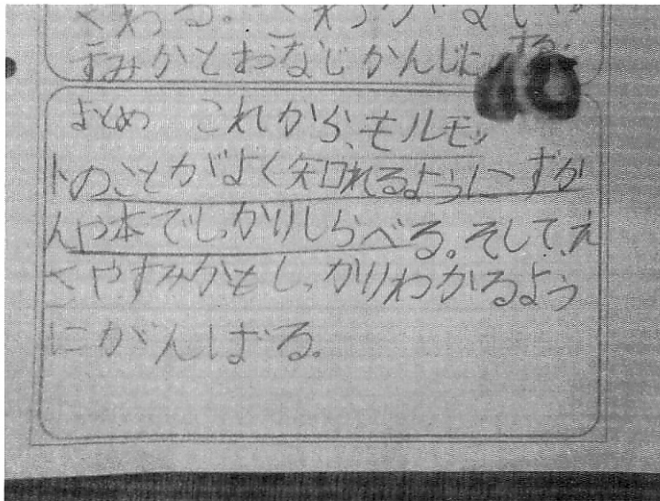 すみかとおなじかんじに する。
40
まとめ これから、モルモッ
トのことがよく知れるようにずか
んや本でしっかりしらべる。そして、え
さやすみかもしっかりわかるよう
にがんばる。